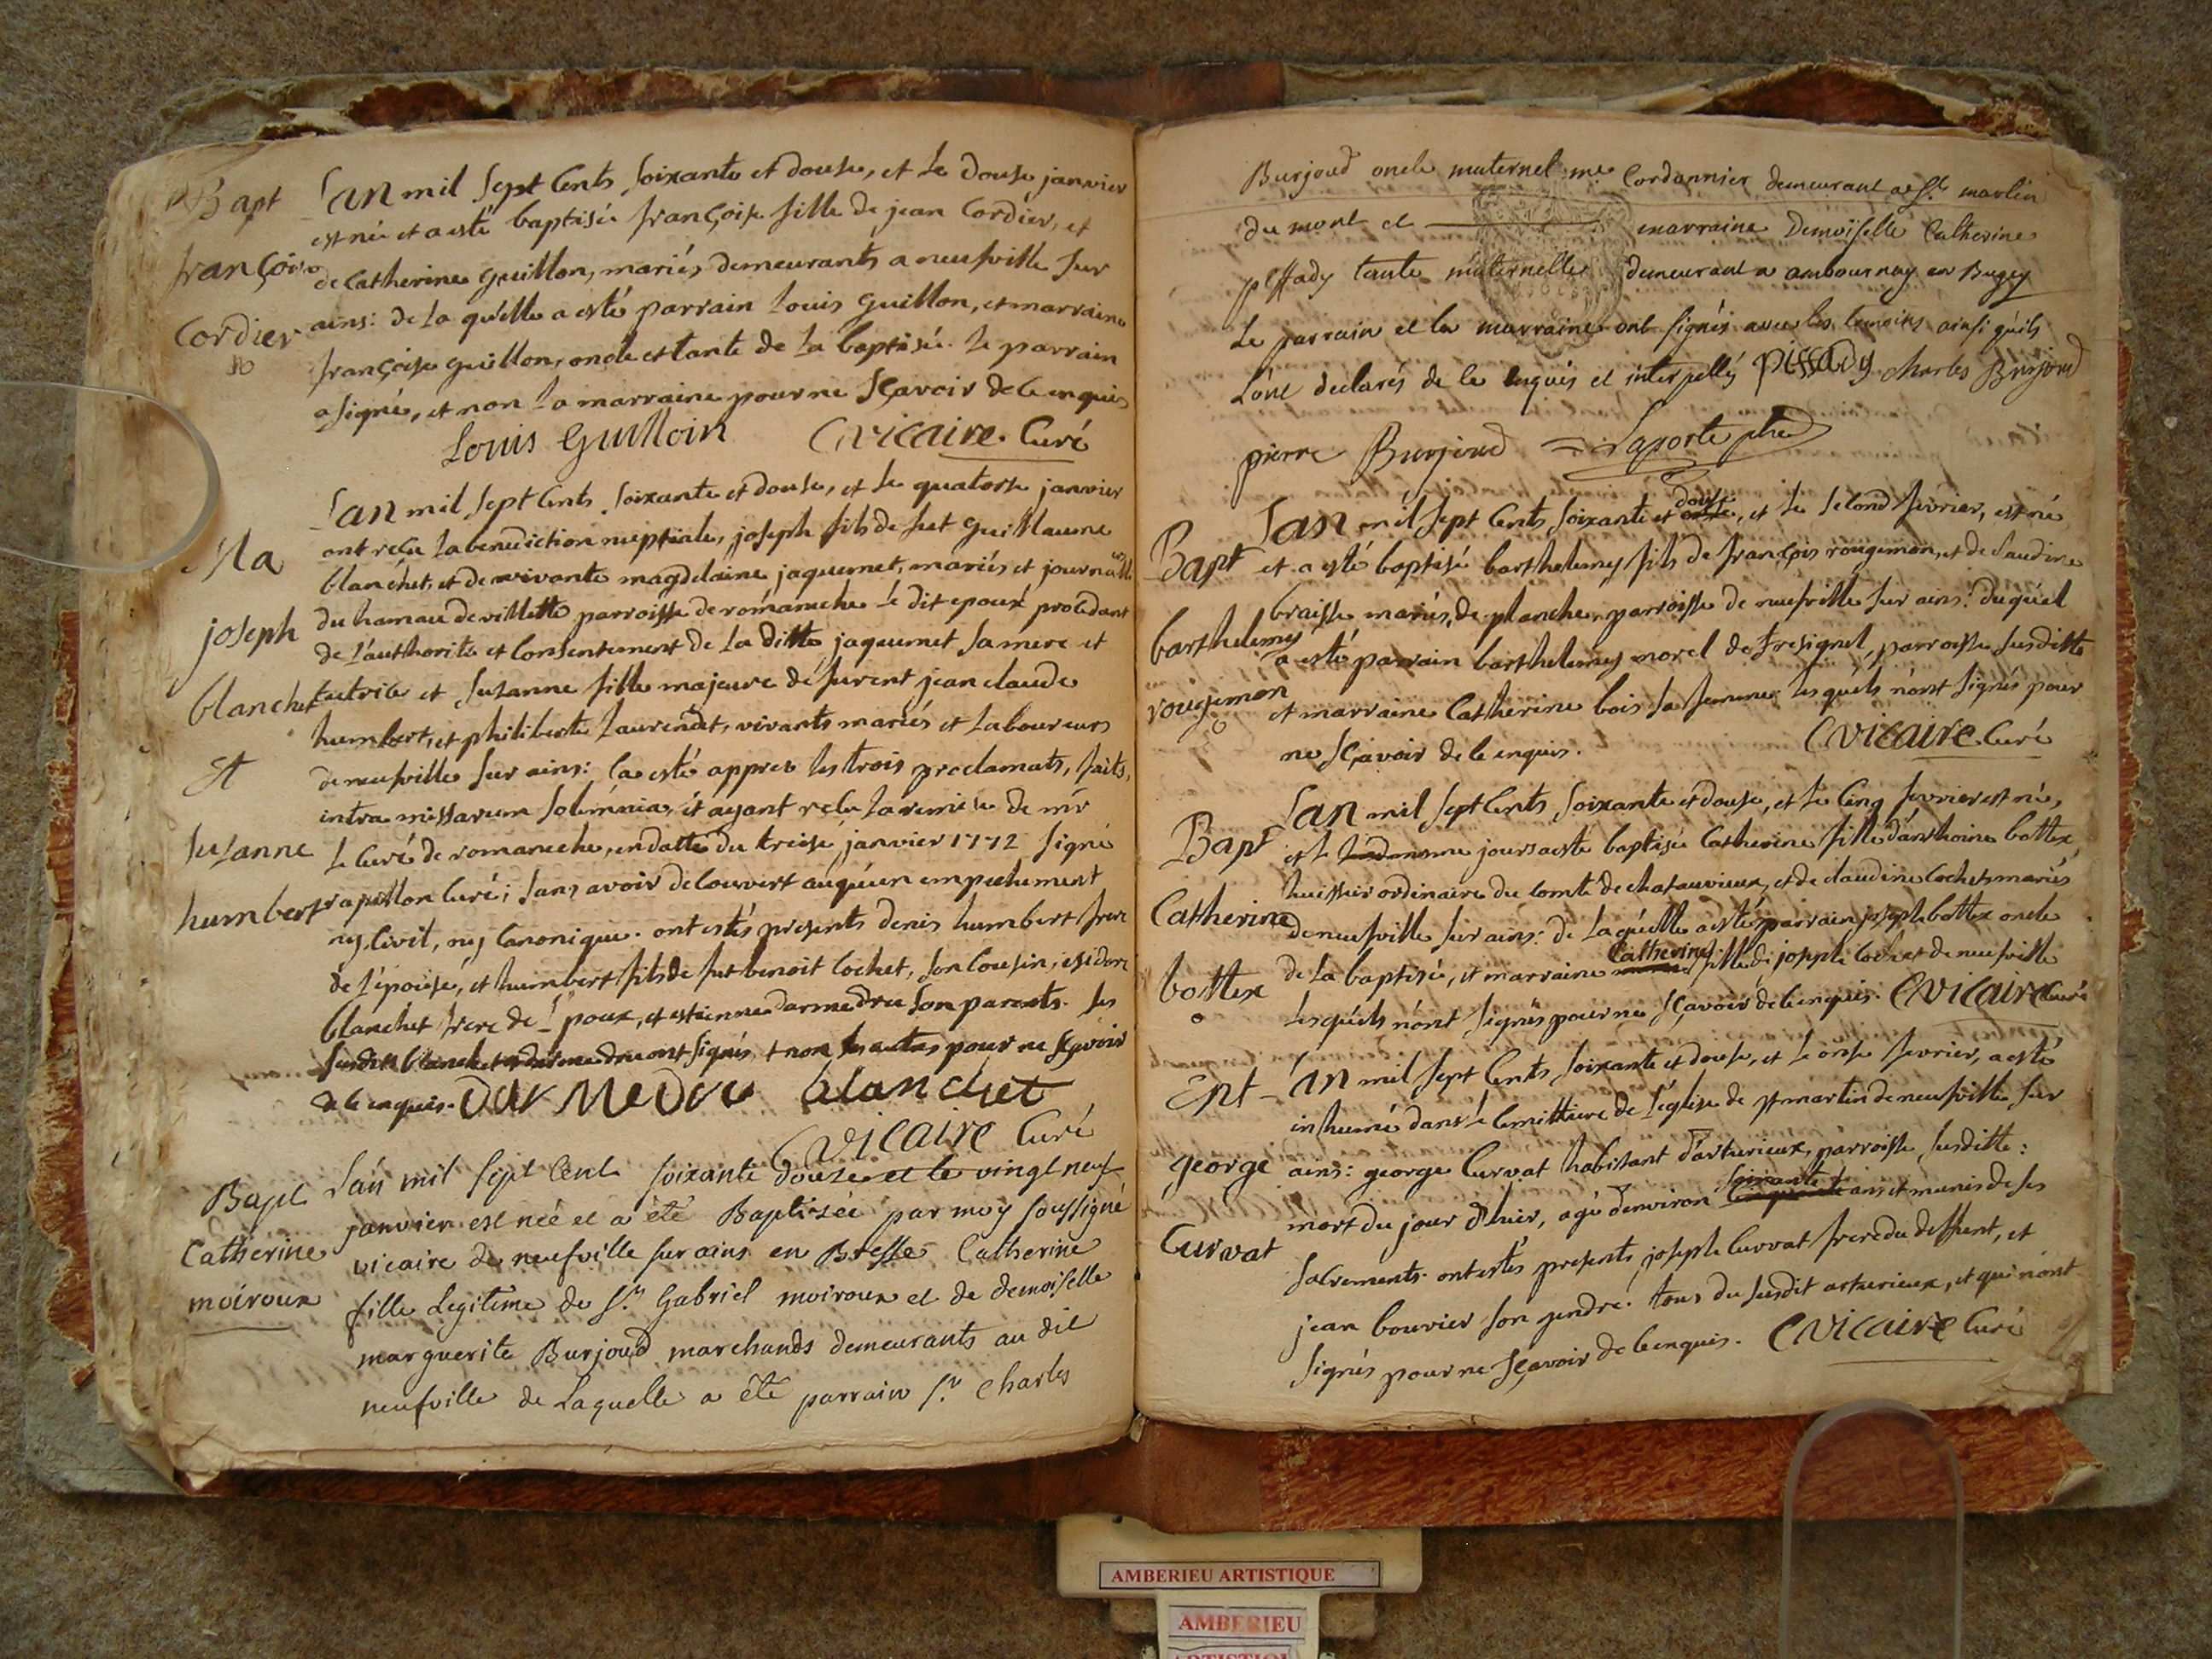 Bapt
françoise
Cordier
L'an mil sept cents soixante et douse, et le douse janvier
est née et a esté baptisée françoise fille de jean Cordier, et
de Catherine guillon, mariés demeurants a neufville sur
ains: de la quélle a esté parrain Louis guillon, et marraine
françoise guillon, oncle et tante de la baptisée. le parrain
a signé, et non la marraine pour ne sçavoir de ce enquis
Louis Guilloin Cvicaire. Curé
Ma
joseph
blanchet
Et
susanne
humbert
L'an mil sept cents soixante et douse, et le quatorse janvier
ont reçu la benediction nuptiale, joseph fils de fut guillaume
blanchet, et de vivante magdelaine jaquemet, mariés et journalle
du hamau de villette parroisse de romaneche le dit epoux procedant
de l'authorité et consentement de la ditte jaquemet sa mere et
tutrice et susanne fille majeure de furent jean claude
humbert, et philiberte laurendet, vivants mariés et laboureurs
de neufville sur ains: ca esté appres les trois proclamats, faits,
intra missarum solemnia, et ayant reçu la remise de mr
le Curé de romaneche, en datte du treise janvier 1772 signé
rapillon Curé; sans avoir decouvert auquéun empechement
ny Civil, ny Canonique. ont estés presents denis humbert frere
de l'épouse, et humbert fils de fut benoit Cochet, son Cousin, esidore
blanchet frere de l'poux, et estienne darmedru son parents. les
susdits blanchet et darmedru ont signés, et non les autres pour ne sçavoir
de ce enquis. Dar Medru blanchet
Cvicaire Curé
Bapt
Catherine
moiroux
L'an mil sept cent soixante douze et le vingt neuf
janvier est née et a été Baptisée par moy soussigné
vicaire de neufville sur ains en Bresse Catherine
fille Legitime de Sr. Gabriel moiroux et de demoiselle
marguerite Burjoud marchands demeurants au dit
neufville de Laquelle a été parrain Sr. Charles
Burjoud oncle maternel me Cordonnier demeurant a St. martin
du mont et marraine Demoiselle Catherine
pissady tante maternelle demeurant a ambournay en Bugey
Le parrain et la marraine ont signés avec les temoins ainsi qu'ils
L'ont declarés de ce enquis et interpellés pissady Charles Burjoud
pierre Burjoud Laporte ptre
Bapt
barthelemy
rougemon
L'an mil sept cents soixante et douse, et le second fevrier, est né
et a esté baptisé barthelemy fils de françois rougemon, et de Claudine
braisse mariés, de planche, parroisse de neufville sur ains: duquél
a esté parrain barthelemy morel de fresignel, parroisse susditte
et marraine Catherine bois sa femme lesquéls n'ont signés pour
ne sçavoir de ce enquis. Cvicaire Curé
Bapt
Catherine
bottex
L'an mil sept cents soixante et douse, et le cinq fevrier est née,
et le jour a esté baptisée Catherine fille d'anthoine bottex
huissier ordinaire du comté de chatauvieux, et de claudine Cochet mariés
de neufville sur ains: de laquélle a esté parrain joseph bottex oncle
de la baptisée, et marraine Catherine fille de joseph Cochet de neufville
lesquéls n'ont signés pour ne sçavoir de ce enquis. Cvicaire Curé
Ent
george
Curvat
L'an mil sept cents soixante et douse, et le onse fevrier, a esté
inhumé dans le cemittiere de l'église de st martin de neufville sur
ains: george Curvat habitant d'arturieux, parroisse susditte:
mort du jour d'hier, agé d'environ soixante ans et munis de ses
sacrements. ont estés presents joseph Curvat frere du deffunt, et
jean bouvier son gendre. tous du susdit arturieux, et qui n'ont
signés pour ne sçavoir de ce enquis. Cvicaire Curé
AMBERIEU ARTISTIQUE
AMBERIEU
ARTISTIQUE